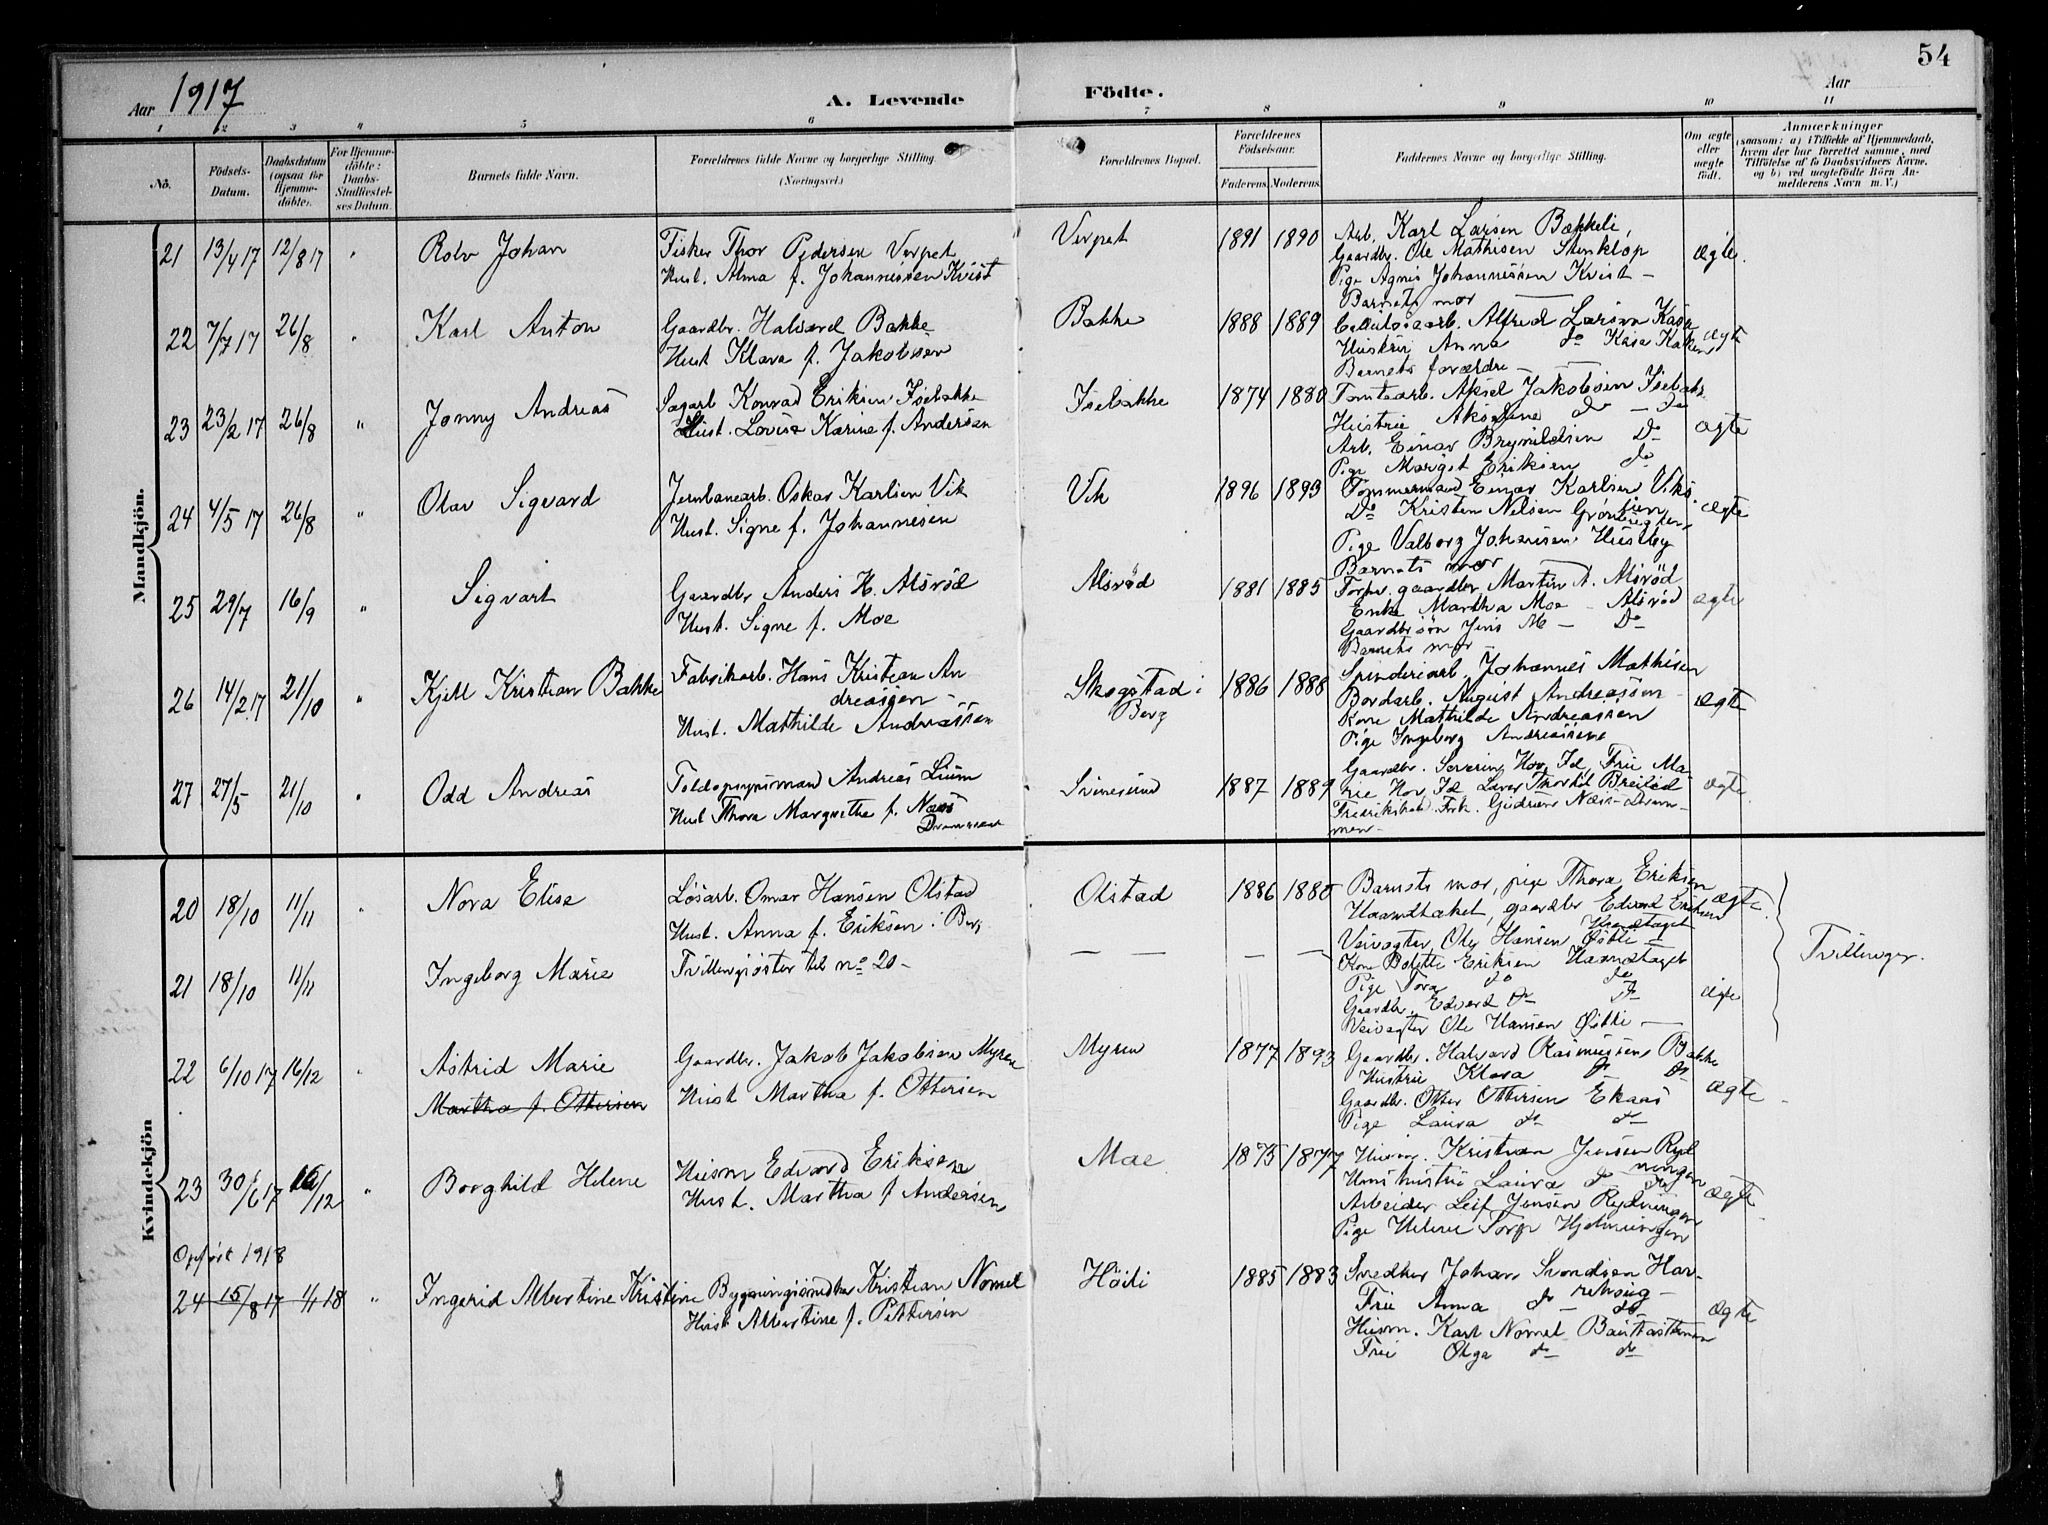 54
Aar 1917
A. Levende Födte.
Aar
1 2 3 4 5 6 7 8 9 10 11
No.
Födsels-Datum.
Daabsdatum (ogsaa for Hjemmedöbte).
For Hjemmedöbte: Daabs-Stadfæstelses Datum.
Barnets fulde Navn.
Forældrenes fulde Navne og borgerlige Stilling.
(Næringsvei.)
Forældrenes Bopæl.
Forældrenes Födselsaar.
Faderens. Moderens.
Faddernes Navne og borgerlige Stilling.
Om ægte eller uægte födt.
Anmærkninger
(saasom: a) i Tilfælde af Hjemmedaab,
hvem der har forrettet samme, med
Tilföielse af to Daabsvidners Navne.
og b) ved uægtefödte Börn An-
melderens Navn m. V.)
Mandkjön.
21 13/4 17 12/8 17 " Rolv Johan
Fisker Thor Pedersen Verpet
Hust. Alma f. Johannessen Kvist
Verpet 1891 1890
Arb. Karl Larsen Bakkeli,
Gaardbr. Ole Mathisen Stenklop
Pige Agnes Johannessen Kvist –
Barnets mor
ægte.
22 7/7 17 26/8 " Karl Anton
Gaardbr. Halvard Bakke
Hust Klara f. Jakobsen
Bakke 1888 1889
Cellulosearb. Alfred Larsen Kasa
Hustru Anna do Kasa
Barnets forældre –
ægte
23 23/2 17 26/8 " Jonny Andreas
Sagarb Konrad Eriksen Isebakke
Hust. Lovise Karine f. Andersen
Isebakke 1874 1880
Tomtearb. Aksel Jakobsen Isebak.
Hustru do – do
Arb. Einar Brynildsen Do
Pige Margit Eriksen do
ægte
24 4/5 17 26/8 " Olav Sigvard
Jernbanearb. Oskar Karlsen Vik
Hust. Signe f. Johannesen
Vik 1896 1893
Tømmermand Einar Karlsen
Do Kristen Nelsen
Pige Valborg Johansen Husthy
Barnets mor
ægte
25 29/7 16/9 " Sigvart
Gaardbr Anders H. Alsrød
Hust. Signe f. Moe
Alsrød 1881 1885
Forhv. gaardbr. Martin A. Alsrød
Enke Martha Moe – Alsrød
Gaardbrsøn Jens M – Do
Barnets mor
ægte
26 14/2 17 21/10 " Kjell Kristian Bakke
Fabrikarb. Hans Kristian An
dreassen –
Hust. Mathilde Andreassen
Skogstad i
Berg
1886 1888
Spinderiarb. Johannes Mathisen
Bordarb. August Andreassen –
Kone Mathilde Andreassen
Pige Ingeborg Andreassen
ægte
27 27/5 21/10 " Odd Andreas
Toldopsynsmand Andreas Lium
Hust Thora Margrethe f. Næss
Drammen
Svinesund 1887 1889
Gaardbr. Severin Hov, Id, Frue Ma-
rie Hov, Id
Fredrikshald. Frk. Gudrun Næss – Dram-
men –
ægte.
Kvindekjön
20 18/10 11/11 " Nora Elise
Løsarb. Omar Hansen Olstad
Hust. Anna f. Eriksen i Berg
Olstad 1886 1880
Barnets mor, pige Thora Eriksen
Haandtaket, gaardbr Edvard Eriksen
Haandtaget
Veivogter Ole Hansen Østli –
ægte.
Tvillinger.
21 18/10 11/11 Ingeborg Marie
Tvillingsøster til no 20 –
– – – –
Kone Bolette Eriksen Haandtaget
Pige Tora do do
Gaardbr. Edvard do do
Veivogter Ole Hansen Østli –
ægte
22 6/10 17 16/12 " Astrid Marie
Martha f. Ottersen
Gaardbr. Jakob Jakobsen Myren
Hust Martha f. Ottersen
Myren 1877 1893
Gaardbr. Halvard Rasmussen Bakke
Hustru Klara do do
Gaardbr. Otter Ottersen Ekaas
Pige Laura do do
ægte
23 30/6 17 16/12 " Borghild Helene
Husm Edvard Eriksen
Hust. Martha f. Andersen
Moe 1875 1877
Kristian Jensen Ryd
ningen
Laura do do
Arbeider Leif Jensen Rydningen
Pige Helene Torp
ægte
Opført 1918
24 15/8 17 1/1 18 " Ingerid Albertine Kristine
Bygningssnedker Kristian Nomel
Hust Albertine f. Pettersen
Höili 1885 1883
Snedker Johan Svendsen
Frue Anna do do
Husm. Karl Nomel
Frue Olga do do
ægte